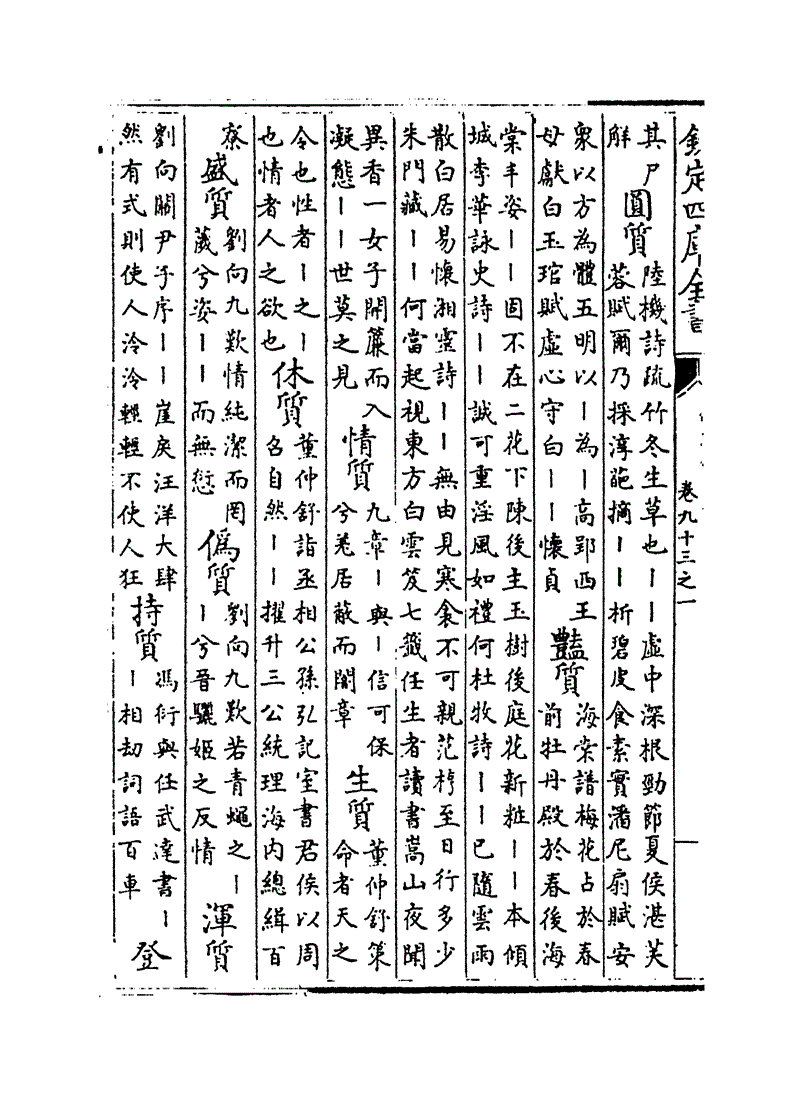 欽定四庫全書
卷九十三之一
其尸
解
圓質
陸機詩疏竹冬生草也丨丨虛中深根勁節夏侯湛芙
蓉賦爾乃採淳葩摘丨丨析碧皮食素實潘尼扇賦安
衆以方為體五明以丨為丨高郢西王
母獻白玉琯賦虛心守白丨丨懷貞
豔質
海棠譜梅花占於春
前牡丹殿於春後海
棠丰姿丨丨固不在二花下陳後主玉樹後庭花新粧丨丨本傾
城李華詠史詩丨丨誠可重淫風如禮何杜牧詩丨丨已隨雲雨
散白居易懷湘靈詩丨丨無由見寒衾不可親范梈至日行多少
朱門藏丨丨何當起視東方白雲笈七籤任生者讀書嵩山夜聞
異香一女子開簾而入
凝態丨丨世莫之見
情質
九章丨與丨信可保
兮羌居蔽而聞章
生質
董仲舒策
命者天之
令也性者丨之丨
也情者人之欲也
休質
董仲舒詣丞相公孫弘記室書君侯以周
召自然丨丨擢升三公統理海内總緝百
寮
盛質
劉向九歎情純潔而罔
薉兮姿丨丨而無愆
偽質
劉向九歎若青蠅之丨
丨兮晉驪姬之反情
渾質
劉向關尹子序丨丨崖戾汪洋大肆
然有式則使人泠泠輕輕不使人狂
持質
馮衍與任武達書丨
丨相劫詞語百車
登